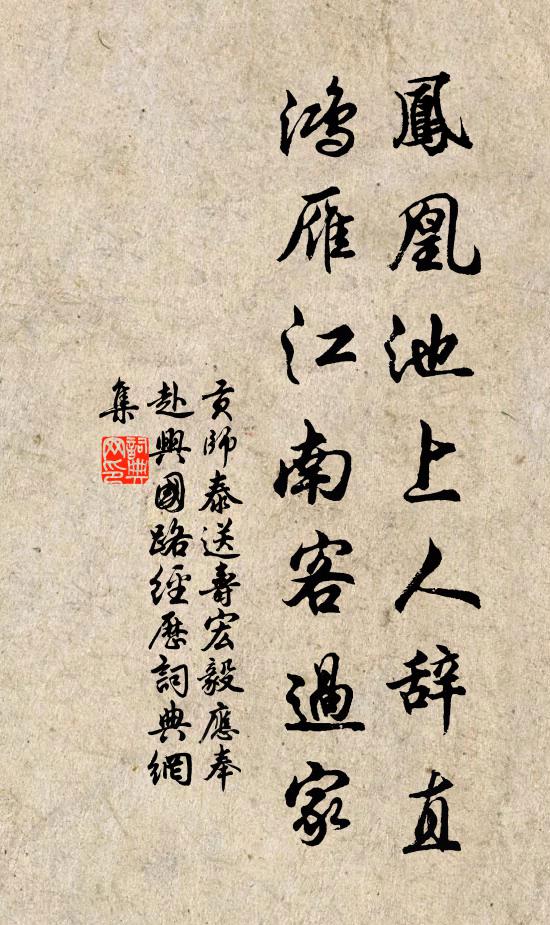 鳳凰池上人辞直
鴻雁江南客過家
貢師泰送壽宏毅應奉
赴興國路經歷詞典網
集
詞典
网印